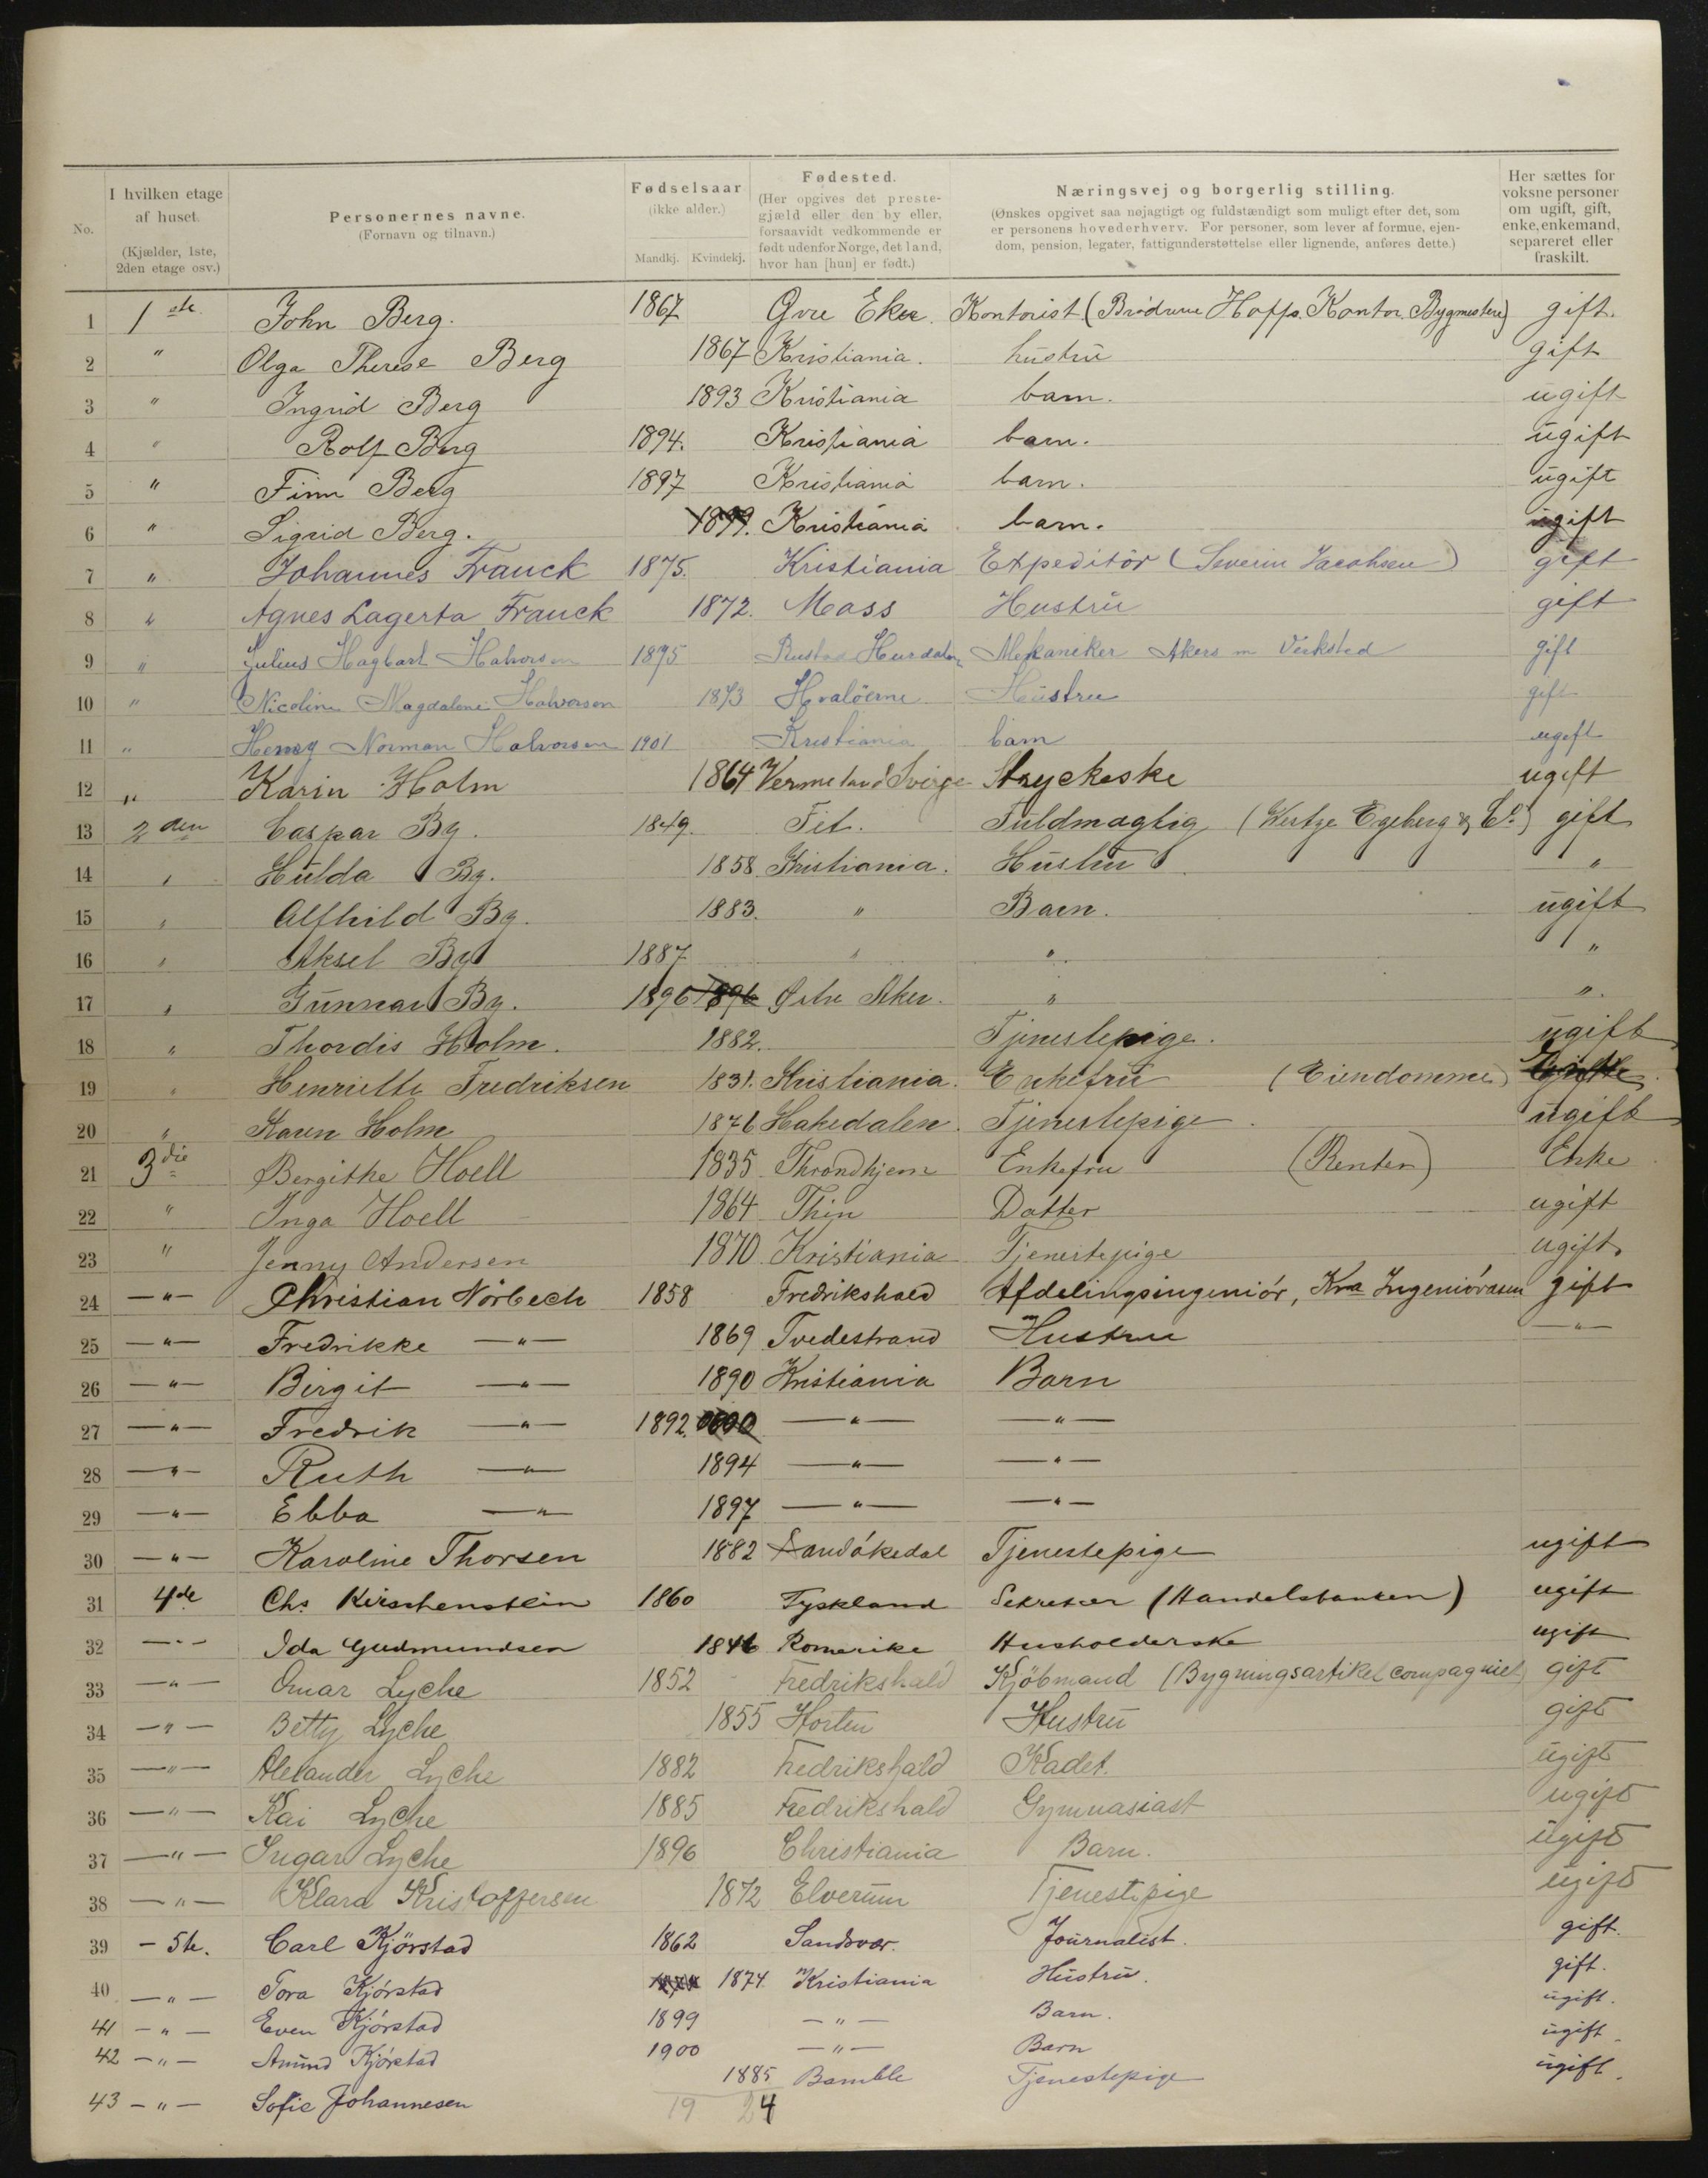 No.
I hvilken etage af huset. (Kjælder, 1ste, 2den etage osv.)
Personernes navne. (Fornavn og tilnavn.)
Fødselsaar (ikke alder.) Mandkj. Kvindekj.
Fødested. (Her opgives det prestegjæld eller den by eller, forsaavidt vedkommende er født udenfor Norge, det land, hvor han [hun] er født.)
Næringsvej og borgerlig stilling. (Ønskes opgivet saa nøjagtigt og fuldstændigt som muligt efter det, som er personens hovederhverv. For personer, som lever af formue, ejendom, pension, legater, fattigunderstøttelse eller lignende, anføres dette.)
Her sættes for voksne personer om ugift, gift, enke, enkemand, separeret eller fraskilt.
1 1ste John Berg. 1867 Øvre Eker. Kontorist (Brødrene Hoffs Kontor. Bygmestere) gift.
2 " Olga Therese Berg 1867 Kristiania. hustru gift
3 " Ingrid Berg 1893 Kristiania barn. ugift
4 " Rolf Berg 1894. Kristiania barn. ugift
5 " Finn Berg 1897 Kristiania barn. ugift
6 " Sigrid Berg. 1899. Kristiania barn. ugift
7 " Johannes Franck 1875. Kristiania Expeditör (Severin Jacobsen) gift
8 " Agnes Lagerta Franck 1872. Moss Hustru gift
9 " Julius Hagbart Halvorsen 1875 Hurdalen Mekaniker Akers m Verksted gift
10 " Nicoline Magdalene Halvorsen 1873 Hvalöerne Hustru gift
11 " Henry Norman Halvorsen 1901 Kristiania barn ugift
12 " Karin Holm 1864 Vermeland Sverge Stryckeske ugift
13 2den Caspar By. 1849. Fet. Fuldmægtig (Westye Egeberg & Co) gift
14 " Hulda By. 1858 Kristiania. Hustru "
15 " Alfhild By. 1883. " Barn. ugift
16 " Aksel By 1887 " " "
17 " Gunnar By. 1896 1896 Østre Aker. " ".
18 " Thordis Holm. 1882. Tjenestepige. ugift
19 " Henriette Fredriksen 1831. Kristiania. Enkefru (Eiendomme) Enke
20 " Karen Holm 1876 Hakedalen. Tjenestepige. ugift
21 3die Bergithe Hoell 1835 Throndhjem Enkefru (Renter) Enke
22 " Inga Hoell 1864 Thin Datter ugift
23 " Jenny Andersen 1870 Kristiania Tjenestepige ugift
24 —"— Christian Nörbech 1858 Fredrikshald Afdelingsingeniör, Kra Ingeniörvæsen gift
25 —"— Fredrikke —"— 1869 Tvedestrand Hustru —"—
26 —"— Birgit —"— 1890 Kristiania Barn
27 —"— Fredrik —"— 1892. —"— —"—
28 —"— Ruth —"— 1894 —"— —"—
29 —"— Ebba —"— 1897 —"— —"—
30 —"— Karoline Thorsen 1882 Sandökedal Tjenestepige ugift
31 4de Chs. Kirschenstein 1860 Tyskland Sekretær (Handelsbanken) ugift
32 —"— Ida Gudmundsen 1846 Romerike Husholderske ugift
33 —"— Omar Lyche 1852 Fredrikshald Kjöbmand (Bygningsartikel compagniet) gift
34 —"— Betty Lyche 1855 Horten Hustru gift
35 —"— Alexander Lyche 1882 Fredrikshald Kadet. ugift
36 —"— Kai Lyche 1885 Fredrikshald Gymnasiast ugift
37 —"— Ingar Lyche 1896 Christiania Barn. ugift
38 —"— Klara Kristoffersen 1872 Elverum Tjenestepige ugift
39 — 5te. Carl Kjörstad 1862 Sandsvær. Journalist. gift.
40 —"— Tora Kjörstad 1874. Kristiania Hustru. gift.
41 —"— Even Kjörstad 1899 —"— Barn. ugift.
42 —"— Amund Kjörstad 1900 —"— Barn ugift.
43 —"— Sofie Johannesen 1885 Bamble Tjenestepige ugift.
19 24